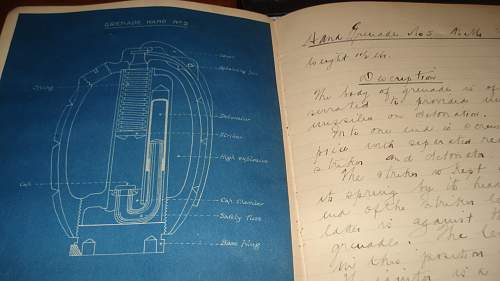 GRENADE HAND Nº5
Lever
Splitting Pin
Spring
Detonator
Striker
High explosive
Cap
Cap Chamber
Safety Fuse
Base Plug
Hand Grenade No 5
Weight 1½ lb.
Description
The body of grenade is of
serrated to provide
missiles on detonation.
Into one end is screw
piece with separated
striker and detonator
The striker is kept
its spring by its head
end of the striker
latter is against
grenade. The
in this position
If igniter is a